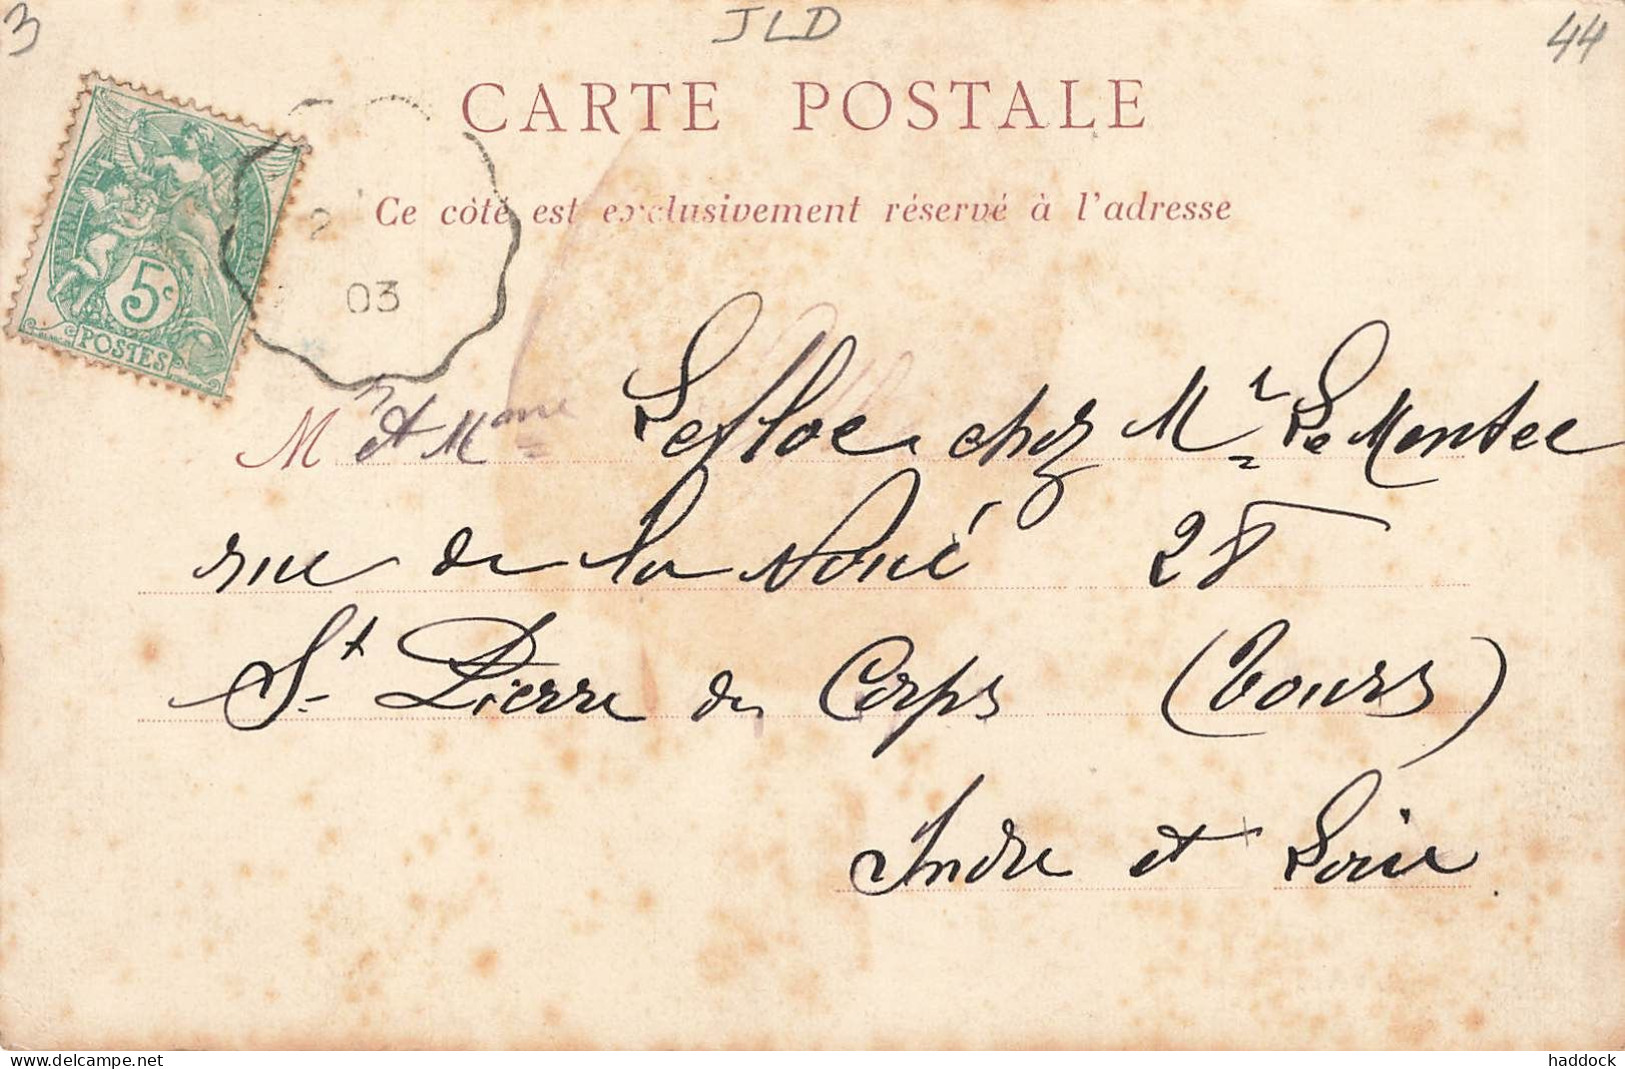 3 JLD 44
CARTE POSTALE
Ce côté est exclusivement réservé à l'adresse
5c
POSTES
03
Mr et Mme Lefloc chez Mr Le Montec
rue de la Noué 28
St Pierre des Corps (Tours)
Indre et Loire.
delcampe.net
haddock